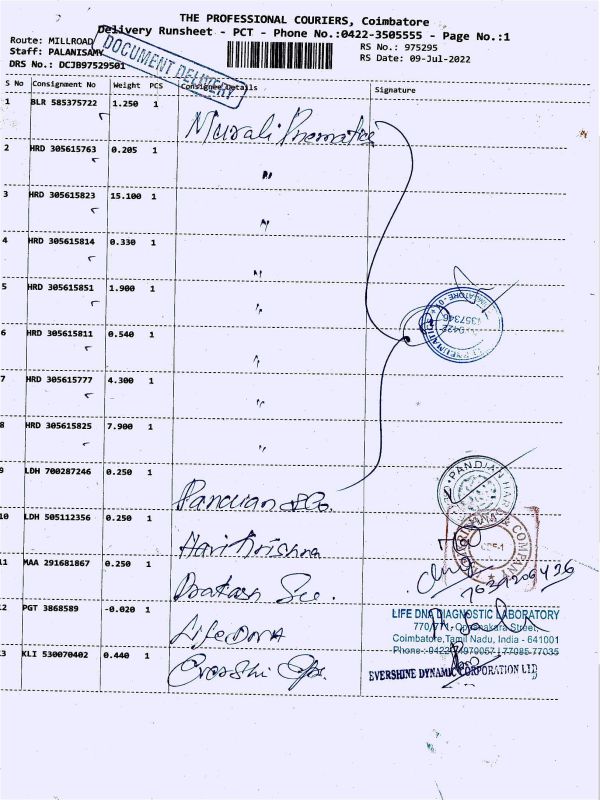 THE PROFESSIONAL COURIERS, Coimbatore
Delivery Runsheet - PCT - Phone No.:0422-3505555 - Page No.:1
Route: MILLROAD
Staff: PALANISAMY
DRS No.: DCJB97529501
RS No.: 975295
RS Date: 09-Jul-2022
DOCUMENT DELIVERY
S No Consignment No Weight PCS Consignee Details Signature
1 BLR 585375722 1.250 1 Murali Pneumatics
2 HRD 305615763 0.205 1 "
3 HRD 305615823 15.100 1 "
4 HRD 305615814 0.330 1 "
5 HRD 305615851 1.900 1 "
6 HRD 305615811 0.540 1 "
7 HRD 305615777 4.300 1 "
8 HRD 305615825 7.900 1 "
9 LDH 700287246 0.250 1 Pandian & Co.
PANDIAN HAR
10 LDH 505112356 0.250 1 Hari Krishna
& COMPAN
11 MAA 291681867 0.250 1
2 PGT 3868589 -0.020 1 Life DNA
LIFE DNA DIAGNOSTIC LABORATORY
Coimbatore, Tamil Nadu, India - 641001
3 KLI 530070402 0.440 1
EVERSHINE DYNAMIC CORPORATION LTD